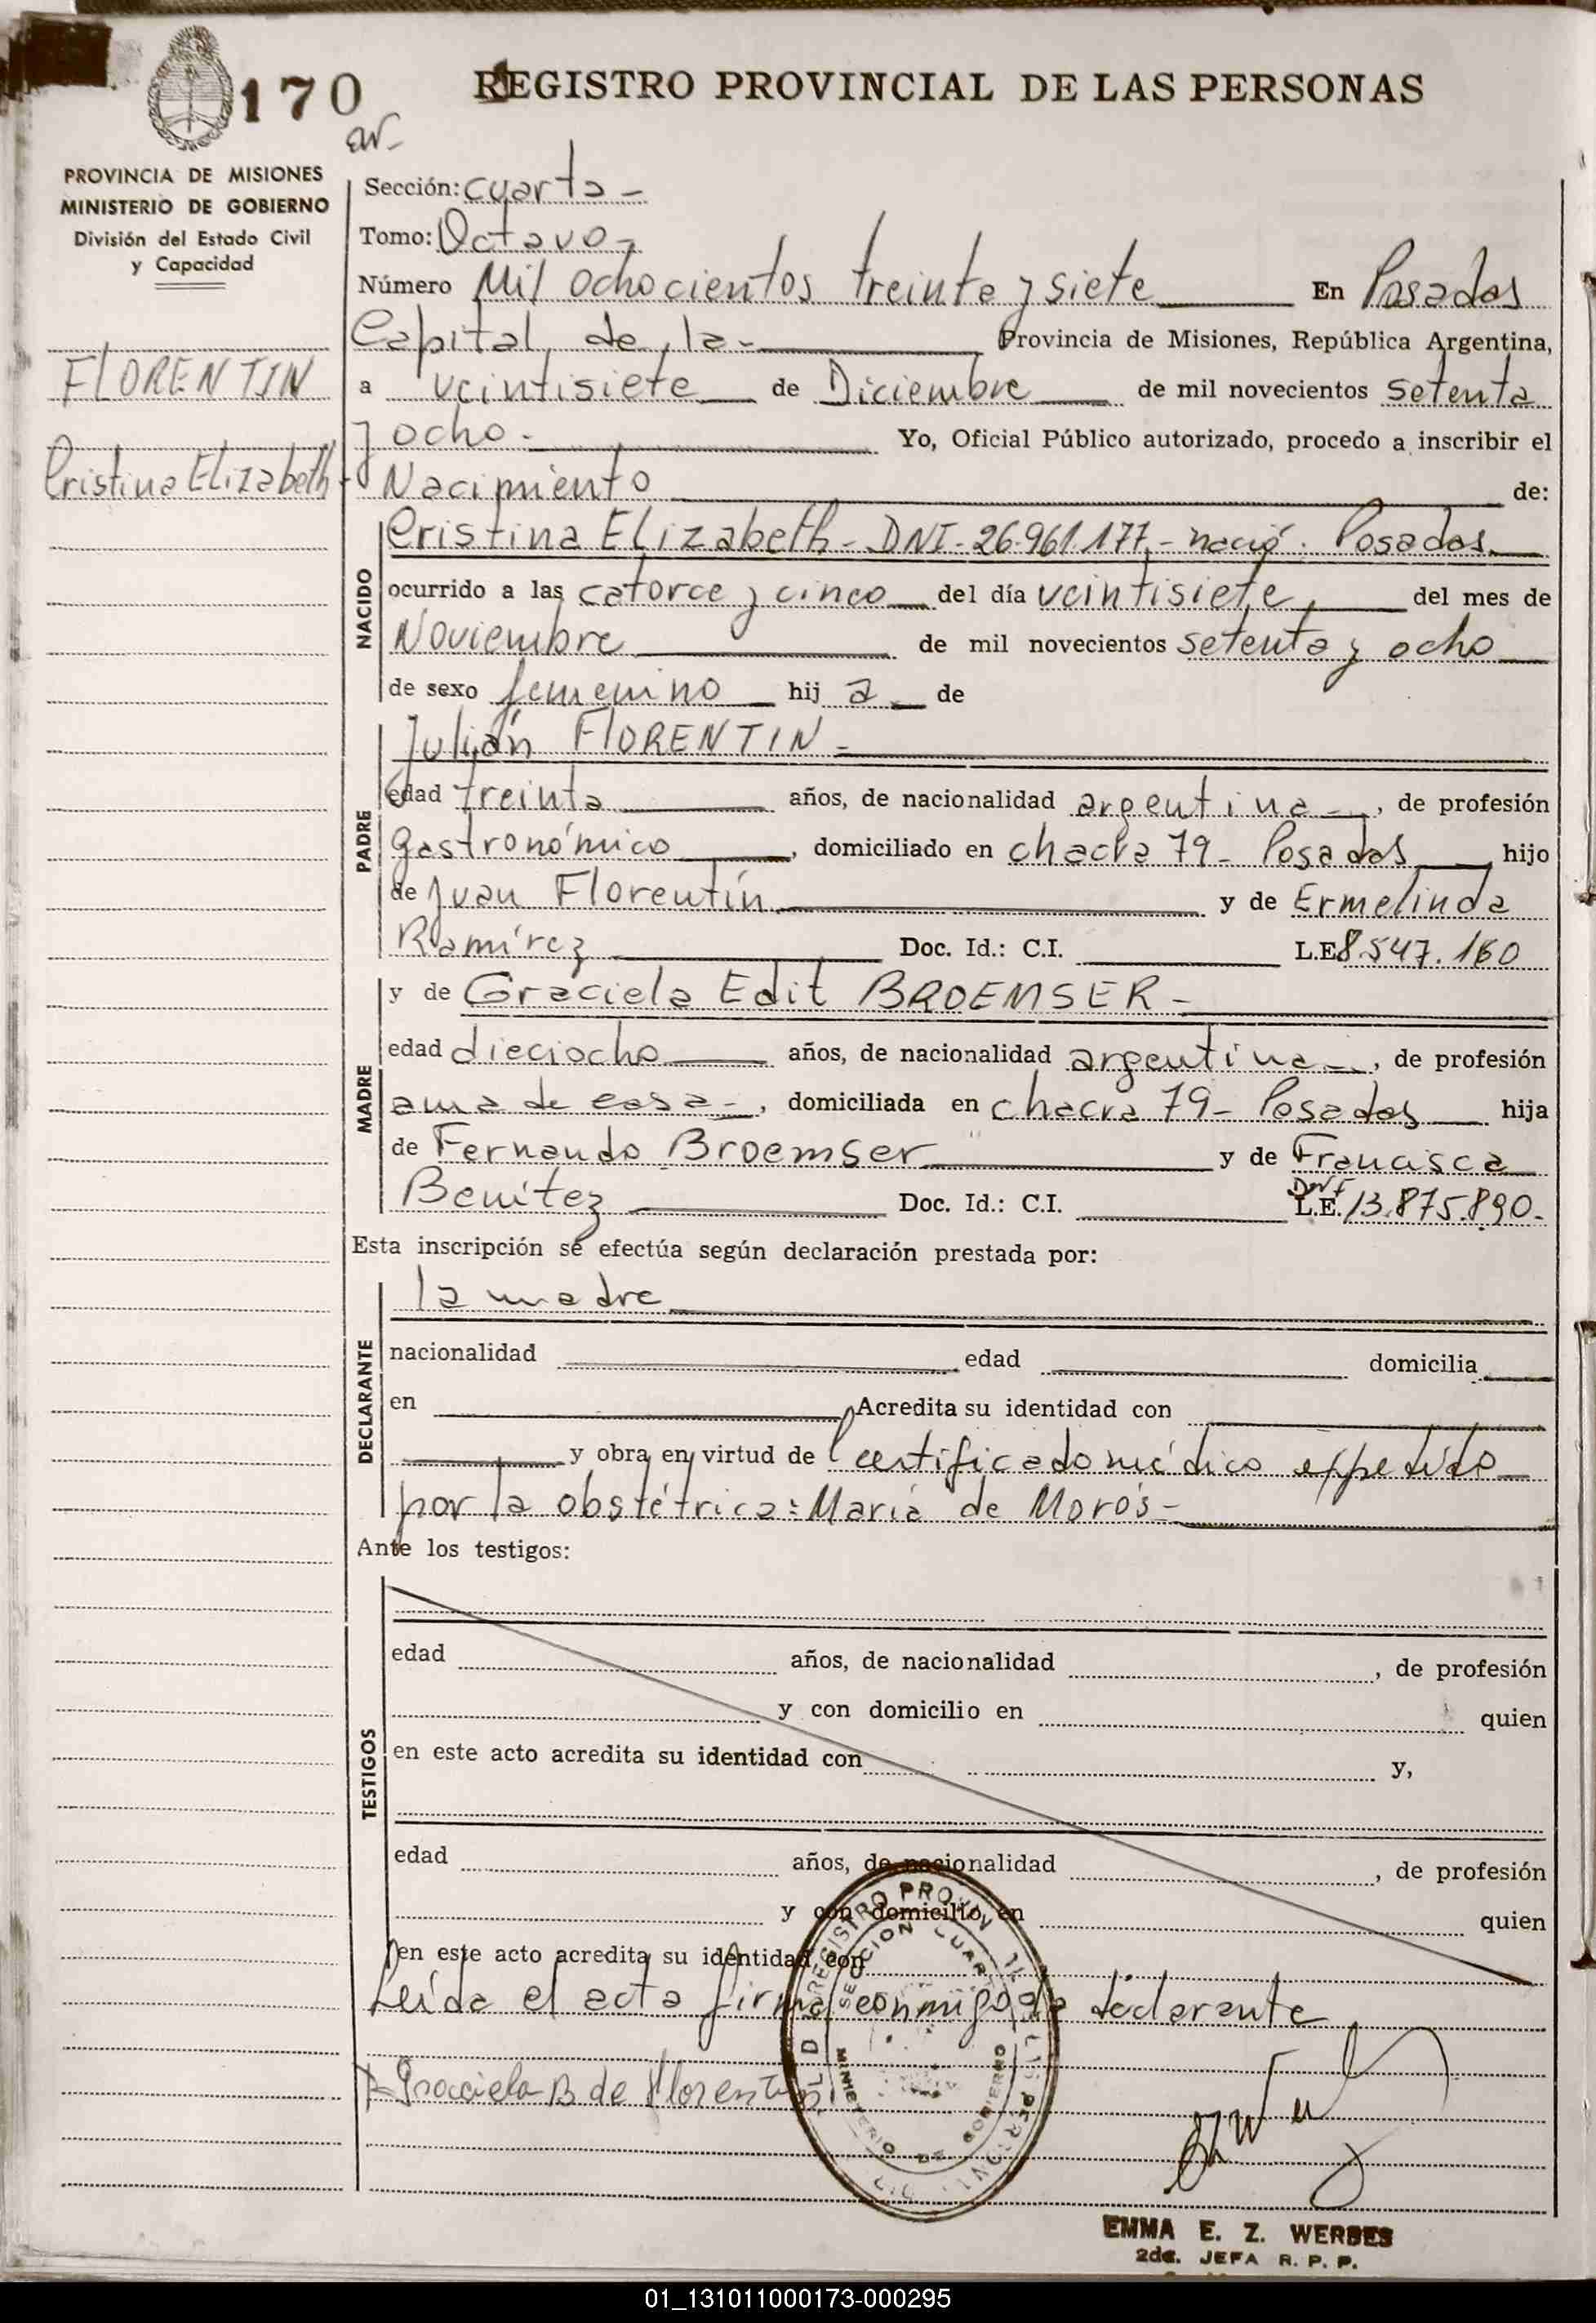 170
REGISTRO PROVINCIAL DE LAS PERSONAS
PROVINCIA DE MISIONES
MINISTERIO DE GOBIERNO
División del Estado Civil
y Capacidad
FLORENTIN
Cristina Elizabeth
Sección: cuarta -
Tomo: Octavo -
Número Mil ochocientos treinta y siete En Posadas
Capital de la - Provincia de Misiones, República Argentina,
a veintisiete de Diciembre de mil novecientos setenta
y ocho. Yo, Oficial Público autorizado, procedo a inscribir el
Nacimiento de:
NACIDO
Cristina Elizabeth - DNI - 26.961.177 - nació. Posadas
ocurrido a las catorce y cinco del día veintisiete del mes de
Noviembre de mil novecientos setenta y ocho
de sexo femenino hij a de
PADRE
Julián FLORENTIN -
edad treinta años, de nacionalidad argentina, de profesión
gastronómico, domiciliado en chacra 79 - Posadas hijo
de Juan Florentín y de Ermelinda
Ramírez Doc. Id.: C.I. L.E. 8.547.160
MADRE
y de Graciela Edit BROEMSER -
edad dieciocho años, de nacionalidad argentina, de profesión
ama de casa -, domiciliada en chacra 79 - Posadas hija
de Fernando Broemser y de Francisca
Benítez Doc. Id.: C.I. L.E. 13.875.890.-
Esta inscripción se efectúa según declaración prestada por:
DECLARANTE
la madre
nacionalidad edad domicilia
en Acredita su identidad con
y obra en virtud de certificado médico expedido
por la obstétrica: María de Morós -
Ante los testigos:
TESTIGOS
edad años, de nacionalidad , de profesión
y con domicilio en quien
en este acto acredita su identidad con y,
edad años, de nacionalidad , de profesión
y con domicilio en quien
en este acto acredita su identidad con
Leída el acta firma conmigo la declarante
Graciela B de Florentin
REGISTRO PROVINCIAL DE LAS PERSONAS
SECCION CUARTA
MINISTERIO DE GOBIERNO
EMMA E. Z. WERBES
2da. JEFA R. P. P.
01_131011000173-000295